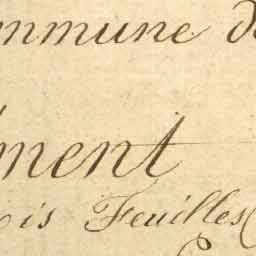 ommune de
ment
is Feuilles